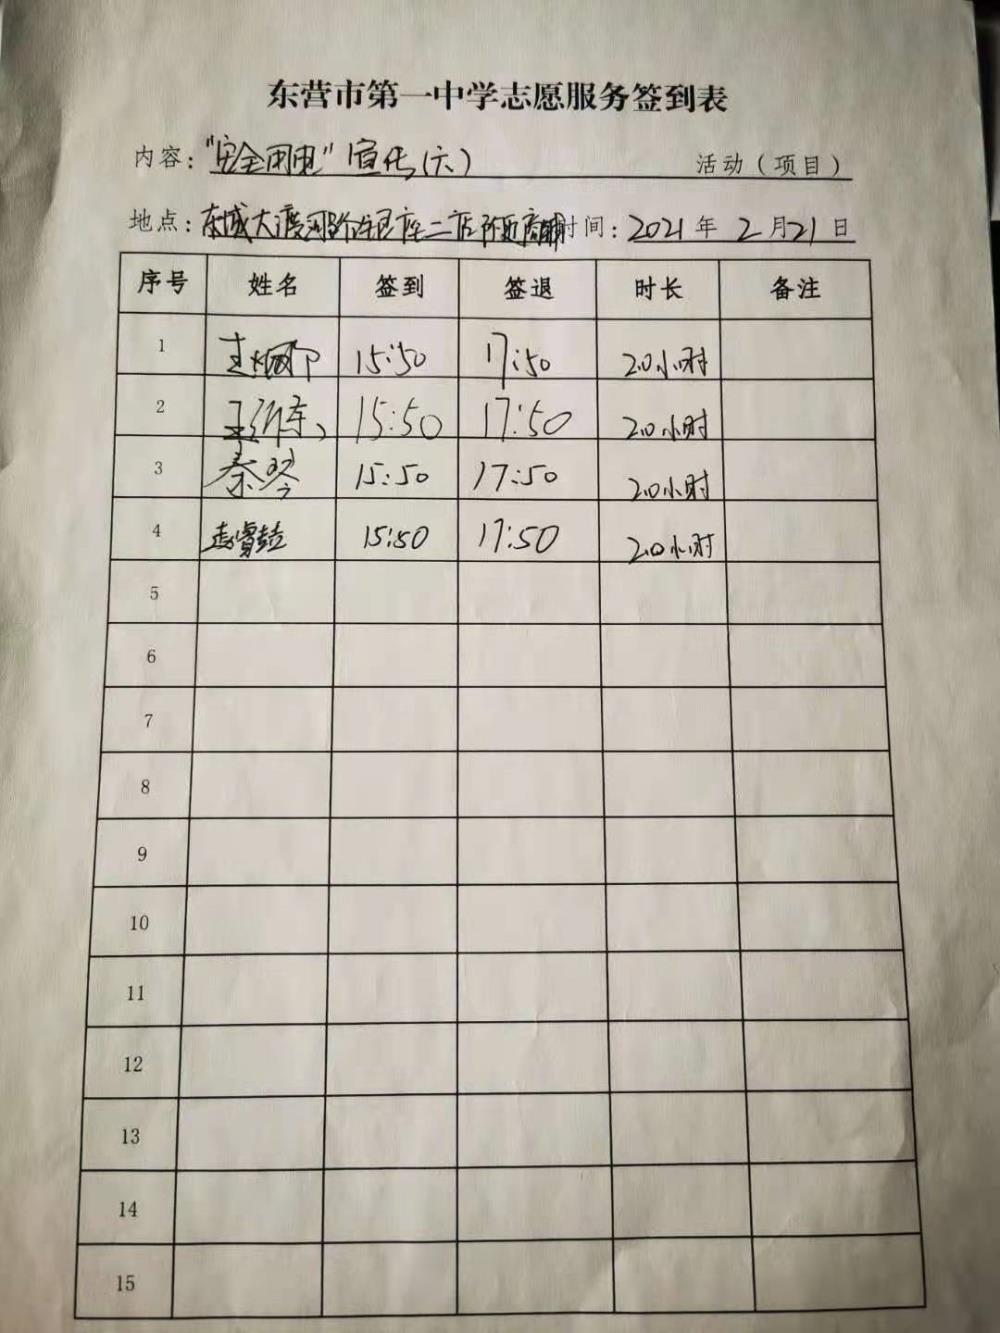 东营市第一中学志愿服务签到表
内容："安全用电"宣传(六) 活动（项目）
地点：东城大渡河路银座二店附近商铺 时间：2021年2月21日
序号 姓名 签到 签退 时长 备注
1 15:50 17:50 2.0小时
2 15:50 17:50 2.0小时
3 秦琴 15:50 17:50 2.0小时
4 15:50 17:50 2.0小时
5
6
7
8
9
10
11
12
13
14
15